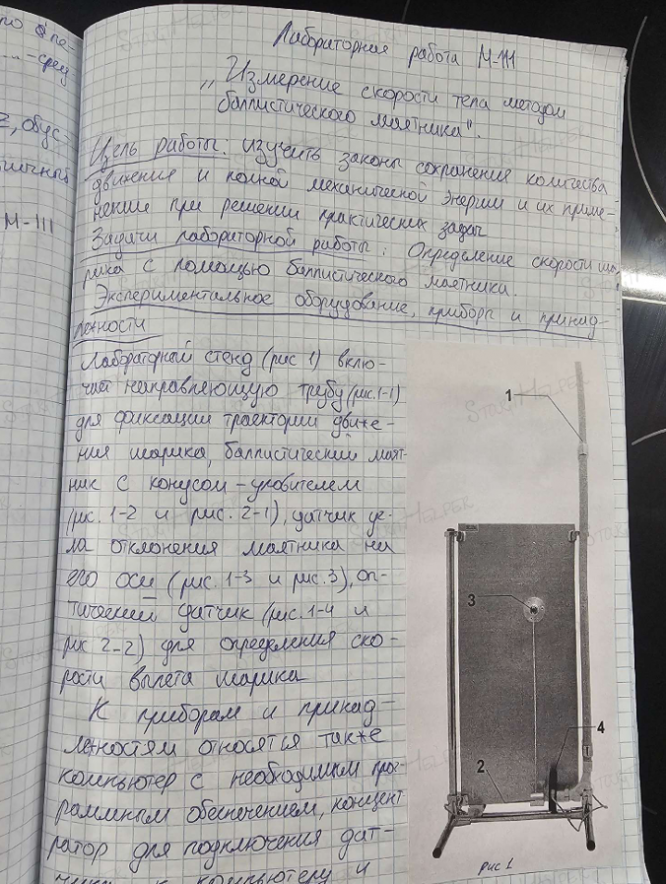 Лабораторная работа М-111
„Измерение скорости тела методом
баллистического маятника".
Цель работы: изучить законы сохранения количества
движения и полной механической энергии и их приме-
нение при решении практических задач
Задачи лабораторной работы: Определение скорости ша-
рика с помощью баллистического маятника.
Экспериментальное оборудование, приборы и принад-
лежности
Лабораторный стенд (рис 1) вклю-
чает направляющую трубу (рис.1-1)
для фиксации траектории движе-
ния шарика, баллистический маят-
ник с конусом-уловителем
(рис. 1-2 и рис. 2-1), датчик уг-
ла отклонения маятника на
его оси (рис. 1-3 и рис.3), оп-
тический датчик (рис. 1-4 и
рис 2-2) для определения ско-
рости вылета шарика
К приборам и принад-
лежностям относятся также
компьютер с необходимым прог-
раммным обеспечением, концент
ратор для подключения дат-
к компьютеру и
1
3
4
2
рис 1
М-111
StudHelper